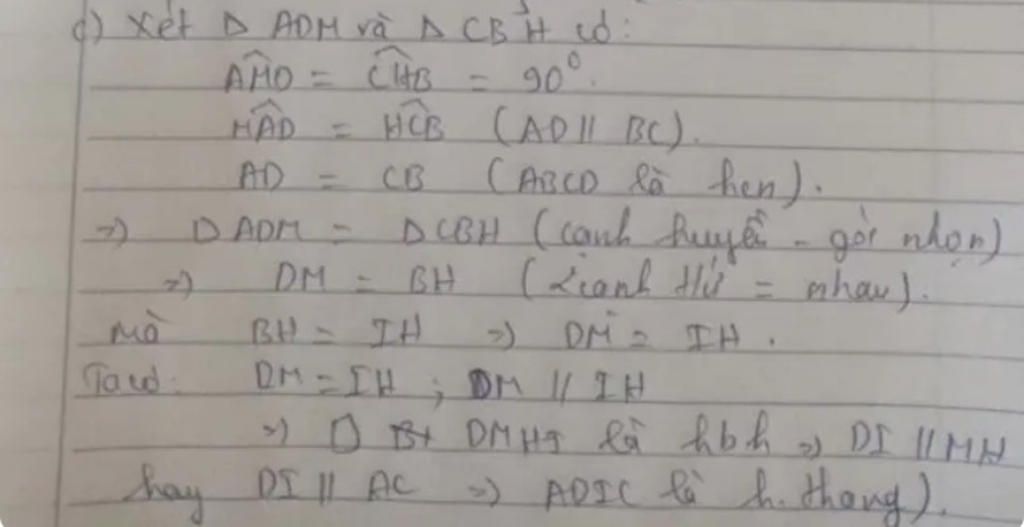 d) Xét Δ ADM và Δ CBH có:
AMD = CHB = 90°.
HAD = HCB (AD // BC).
AD = CB (ABCD là hcn).
=> Δ ADM = Δ CBH (cạnh huyền - góc nhọn)
=> DM = BH (2 cạnh t/ứ = nhau).
Mà BH = IH => DM = IH.
Ta có: DM = IH ; DM // IH
=> □ DMHI là hbh => DI // MH
hay DI // AC => ADIC là h.thang).